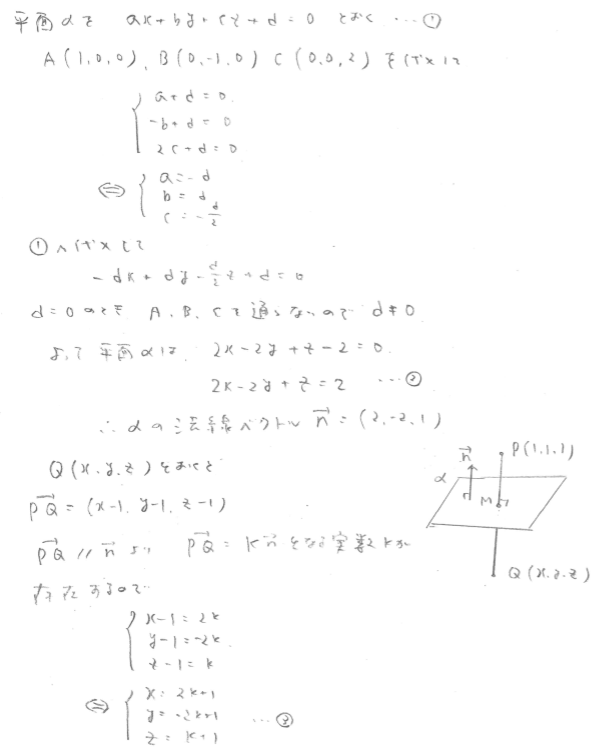 平面αを ax+by+cz+d=0 とおく …①
A(1,0,0), B(0,-1,0) C(0,0,2) を代入して
{ a+d=0
-b+d=0
2c+d=0
⇔ { a=-d
b=d
c=-d/2
①へ代入して
-dx+dy-d/2z+d=0
d=0のとき A, B, Cを通らないので d≠0
よって 平面αは 2x-2y+z-2=0
2x-2y+z=2 …②
∴ αの法線ベクトル n→=(2,-2,1)
Q(x,y,z)とおくと
PQ→=(x-1, y-1, z-1)
PQ→ // n→ より PQ→=kn→となる実数kが
ただ あるので
{ x-1=2k
y-1=-2k
z-1=k
⇔ { x=2k+1
y=-2k+1
z=k+1 …③
n→
P(1,1,1)
α
M
Q(x,y,z)